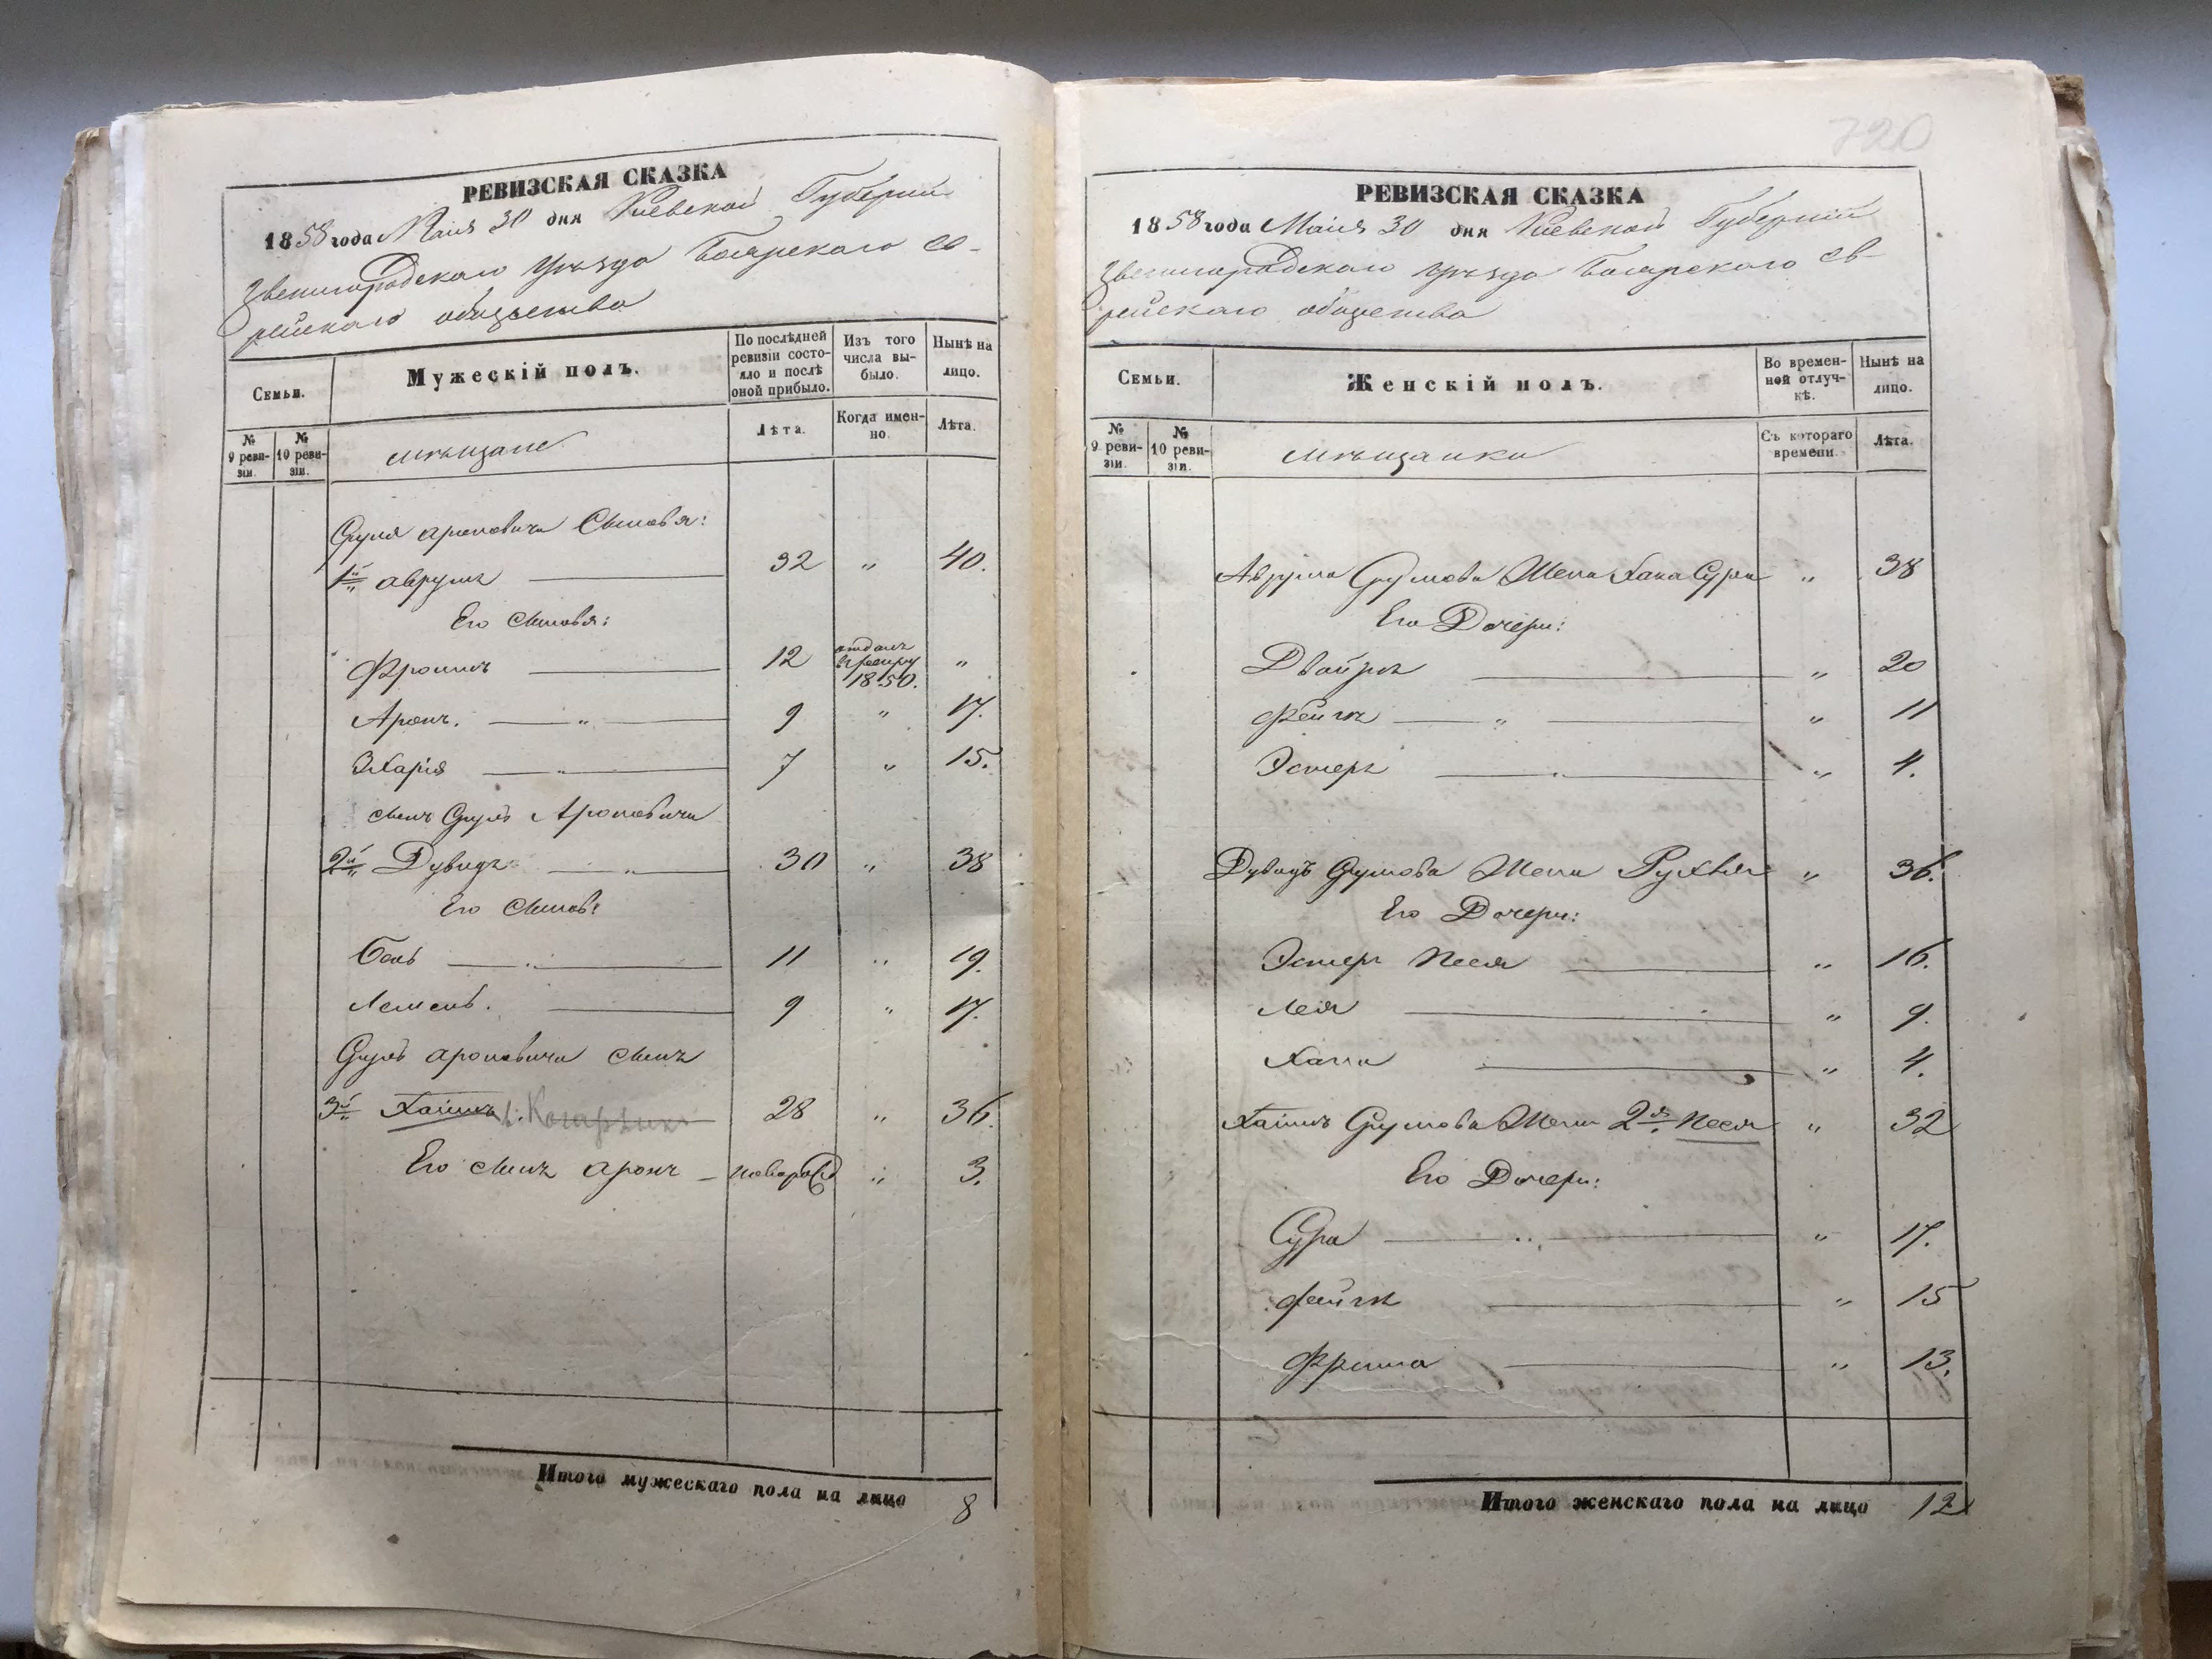 РЕВИЗСКАЯ СКАЗКА
1858 года Маія 30 дня Кіевской Губерніи
Звенигородскаго Уѣзда Боярскаго Ев-
рейскаго общества
Семьи.
Мужескій полъ.
По послѣдней ревизіи состо-
яло и послѣ
оной прибыло.
Изъ того
числа вы-
было.
Нынѣ на
лицо.
№
9 реви-
зіи.
№
10 реви-
зіи.
мѣщане
Лѣта.
Когда имен-
но.
Лѣта.
Сруля Ароновича Сыновья:
1й Аврумъ 32 „ 40.
Его Сыновья:
Фроимъ 12 отданъ
въ рекруты
1850. „
Аронъ. „ 9 „ 17.
Зхарія „ 7 „ 15.
сынъ Сруля Ароновича
2й Дувидъ „ 30 „ 38
Его Сыновь:
Бень „ 11 „ 19.
9 „ 17.
Сруль Ароновича сынъ
3й Хаимъ 28 „ 36.
Его сынъ Аронъ – новорож „ 3.
Итого мужескаго пола на лицо 8
720
РЕВИЗСКАЯ СКАЗКА
1858 года Маія 30 дня Кіевской Губерніи
Звенигородскаго Уѣзда Боярскаго Ев-
рейскаго общества
Семьи.
Женскій полъ.
Во времен-
ной отлуч-
кѣ.
Нынѣ на
лицо.
№
9 реви-
зіи.
№
10 реви-
зіи.
мѣщанки
Съ котораго
времени.
Лѣта.
Аврума Срулова Жена Хана Сура „ 38
Его Дочери:
Двойра „ 20
Фейга „ „ 11
Эстеръ „ „ 4.
Дувидъ Срулова Жена Рухля „ 36.
Его Дочери:
Эстеръ Песя „ 16.
Лея „ 9.
Хана „ 4.
Хаимъ Срулова Жена 2я Песя „ 32
Его Дочери:
Сура „ „ 17.
Фейга „ 15
Фрима „ 13.
Итого женскаго пола на лицо 12